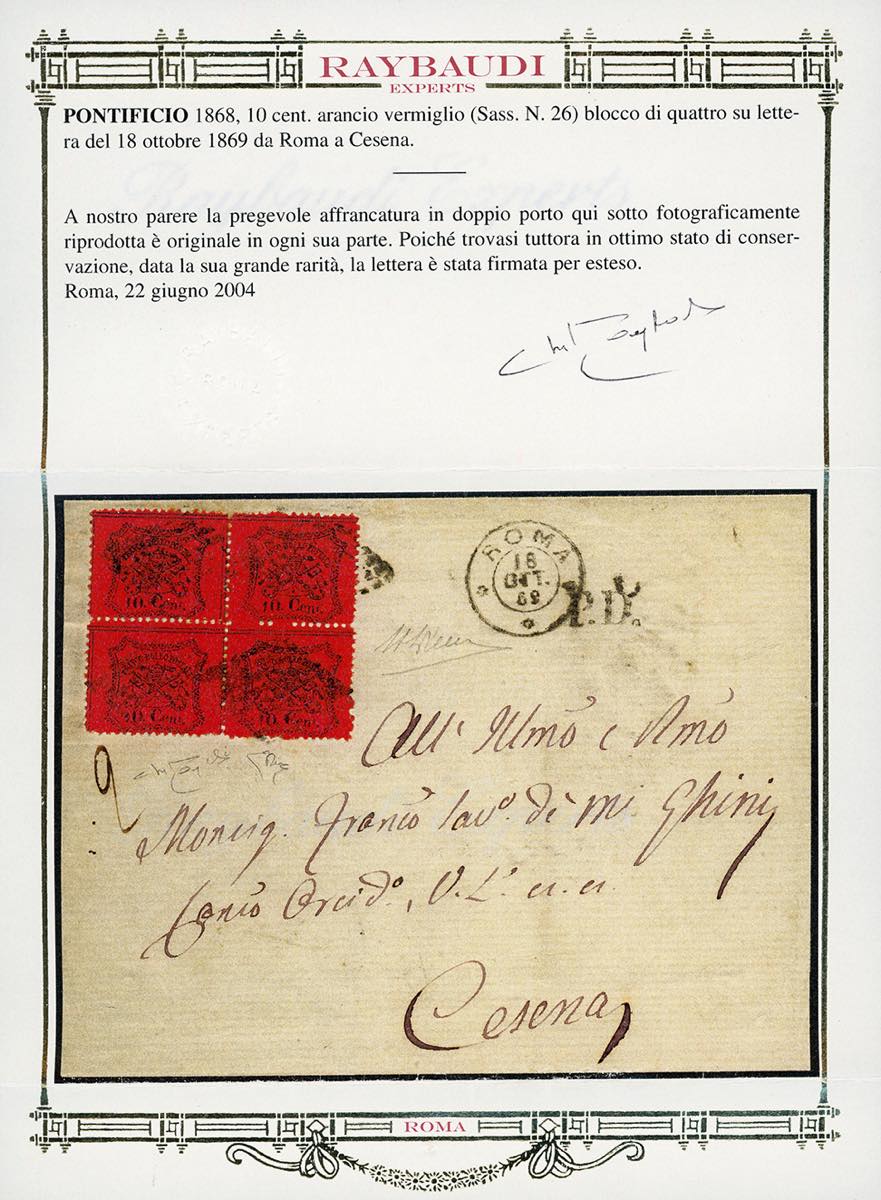 RAYBAUDI
EXPERTS
PONTIFICIO 1868, 10 cent. arancio vermiglio (Sass. N. 26) blocco di quattro su lette-
ra del 18 ottobre 1869 da Roma a Cesena.
A nostro parere la pregevole affrancatura in doppio porto qui sotto fotograficamente
riprodotta è originale in ogni sua parte. Poiché trovasi tuttora in ottimo stato di conser-
vazione, data la sua grande rarità, la lettera è stata firmata per esteso.
Roma, 22 giugno 2004
ROMA
18
OTT.
69
P.D.
10. Cent. 10. Cent.
10. Cent. 10. Cent.
2
All' Illmo e Rmo
Monsig. Franco di Ghini
Cesena
ROMA